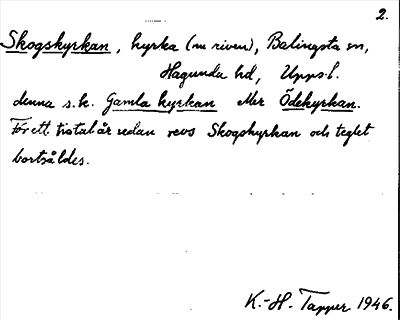 2.
Skogskyrkan, kyrka (nu riven), Balingsta sn,
Hagunda hd, Upps. l.
denna s.k. Gamla kyrkan eller Ödekyrkan.
För ett tiotal år sedan revs Skogskyrkan och teglet
bortsåldes.
K.-H. Tapper 1946.